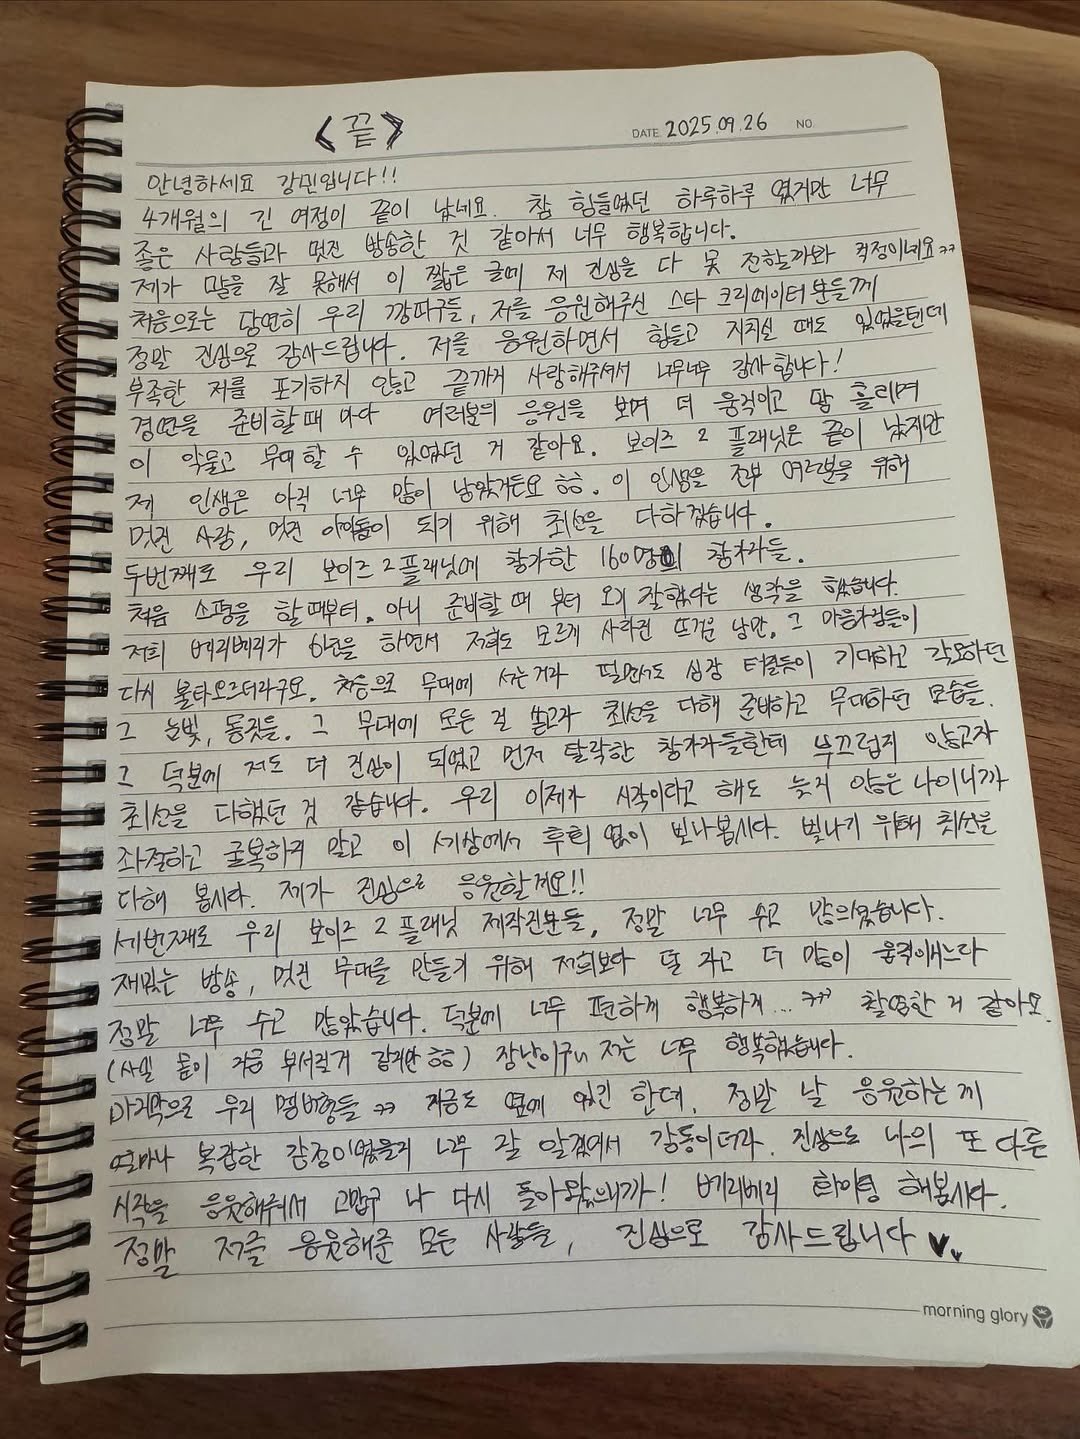 <끝>
DATE. 2025.09.26 NO.
안녕하세요 강민입니다!!
4개월의 긴 여정이 끝이 났네요. 참 힘들었던 하루하루 였지만 너무
좋은 사람들과 멋진 방송한 것 같아서 너무 행복합니다.
제가 말을 잘 못해서 이 짧은 글에 제 진심을 다 못 전할까봐 걱정이네요ㅋㅋ
처음으로는 당연히 우리 깡파구들, 저를 응원해주신 스타 크리에이터 분들께
정말 진심으로 감사드립니다. 저를 응원하면서 힘들고 지치실 때도 있었을텐데
부족한 저를 포기하지 않고 끝까지 사랑해주셔서 너무너무 감사합니다!
경연을 준비할때 마다 여러분의 응원을 보며 더 움직이고 땀 흘리며
이 악물고 무대할 수 있었던 거 같아요. 보이즈 2 플래닛은 끝이 났지만
제 인생은 아직 너무 많이 남았거든요 ㅎㅎ. 이 인생을 전부 여러분을 위해
멋진 사람, 멋진 아이돌이 되기 위해 최선을 다하겠습니다.
두번째로 우리 보이즈 2 플래닛에 참가한 160명의 참가자들.
처음 소평을 할때부터. 아니 준비할 때 부터 오기 잘했다는 생각을 했습니다.
저희 베리베리가 6년을 하면서 저희도 모르게 사라진 뜨거운 낭만, 그 마음가짐들이
다시 불타오르더라구요. 처음으로 무대에 서는거라 떨면서도 심장 터질듯이 기대하고 각오하던
그 눈빛, 몸짓들. 그 무대에 모든 걸 쏟고자 최선을 다해 준비하고 무대하던 모습들.
그 덕분에 저도 더 진심이 되었고 먼저 탈락한 참가자들한테 부끄럽지 않고자
최선을 다했던 것 같습니다. 우리 이제가 시작이라고 해도 늦지 않은 나이니까
좌절하고 굴복하지 말고 이 세상에서 후회 없이 보나봅시다. 빛나기 위해 최선을
다해 봅시다. 제가 진심으로 응원할게요!!
세번째로 우리 보이즈 2 플래닛 제작진분들, 정말 너무 수고 많으셨습니다.
재밌는 방송, 멋진 무대를 만들기 위해 저희보다 덜 자고 더 많이 움직이느라
정말 너무 수고 많았습니다. 덕분에 너무 편하게 행복하게... ㅋㅋ 촬영한 거 같아요.
(사실 몸이 지금 부서질거 같지만 ㅎㅎ) 장난이구 저는 너무 행복했습니다.
마지막으로 우리 멤버형들 ㅋㅋ 지금도 옆에 있긴 한데, 정말 날 응원하는게
얼마나 복잡한 감정이었을지 너무 잘 알겠어서 감동이더라. 진심으로 나의 또 다른
시작을 응원해줘서 고맙구 나 다시 돌아왔으니까! 베리베리 화이팅 해봅시다.
정말 저를 응원해준 모든 사람들, 진심으로 감사드립니다 ♥♥
morning glory